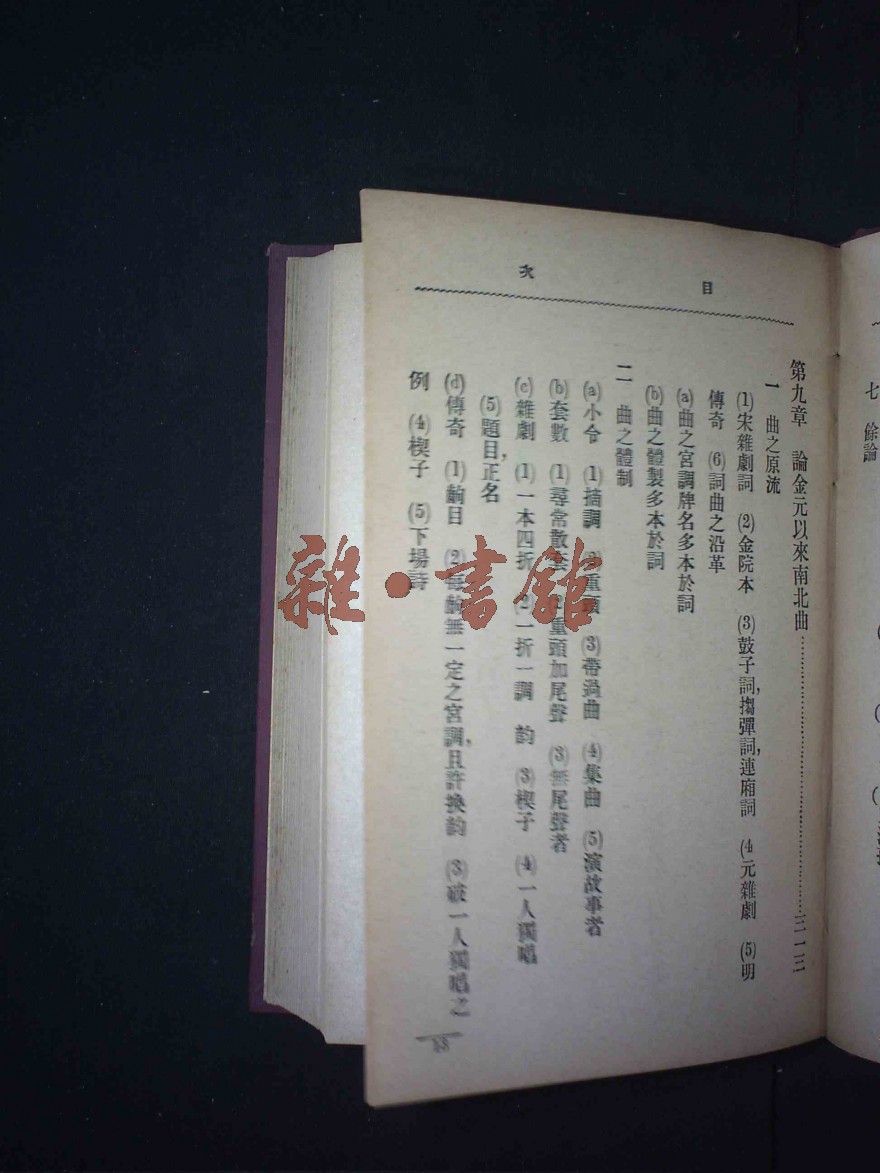 目次
第九章 論金元以來南北曲……三一三
一 曲之原流
(1)宋雜劇詞 (2)金院本 (3)鼓子詞,搊彈詞,連廂詞 (4元雜劇 (5)明
傳奇 (6)詞曲之沿革
(a)曲之宮調牌名多本於詞
(b)曲之體製多本於詞
二 曲之體制
(a)小令 (1)摘調 (2)重頭 (3)帶過曲 (4)集曲 (5)演故事者
(b)套數 (1)尋常散套 (2)重頭加尾聲 (3)無尾聲者
(c)雜劇 (1)一本四折 (2)一折一調 韵 (3)楔子 (4)一人獨唱
(5)題目,正名
(d)傳奇 (1)齣目 (2)每齣無一定之宮調,且許換韵 (3)破一人獨唱之
例 (4)楔子 (5)下場詩
七 餘論
雜·書館